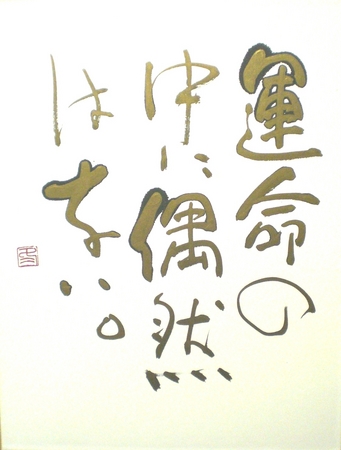 運命の
中に偶然
はない。